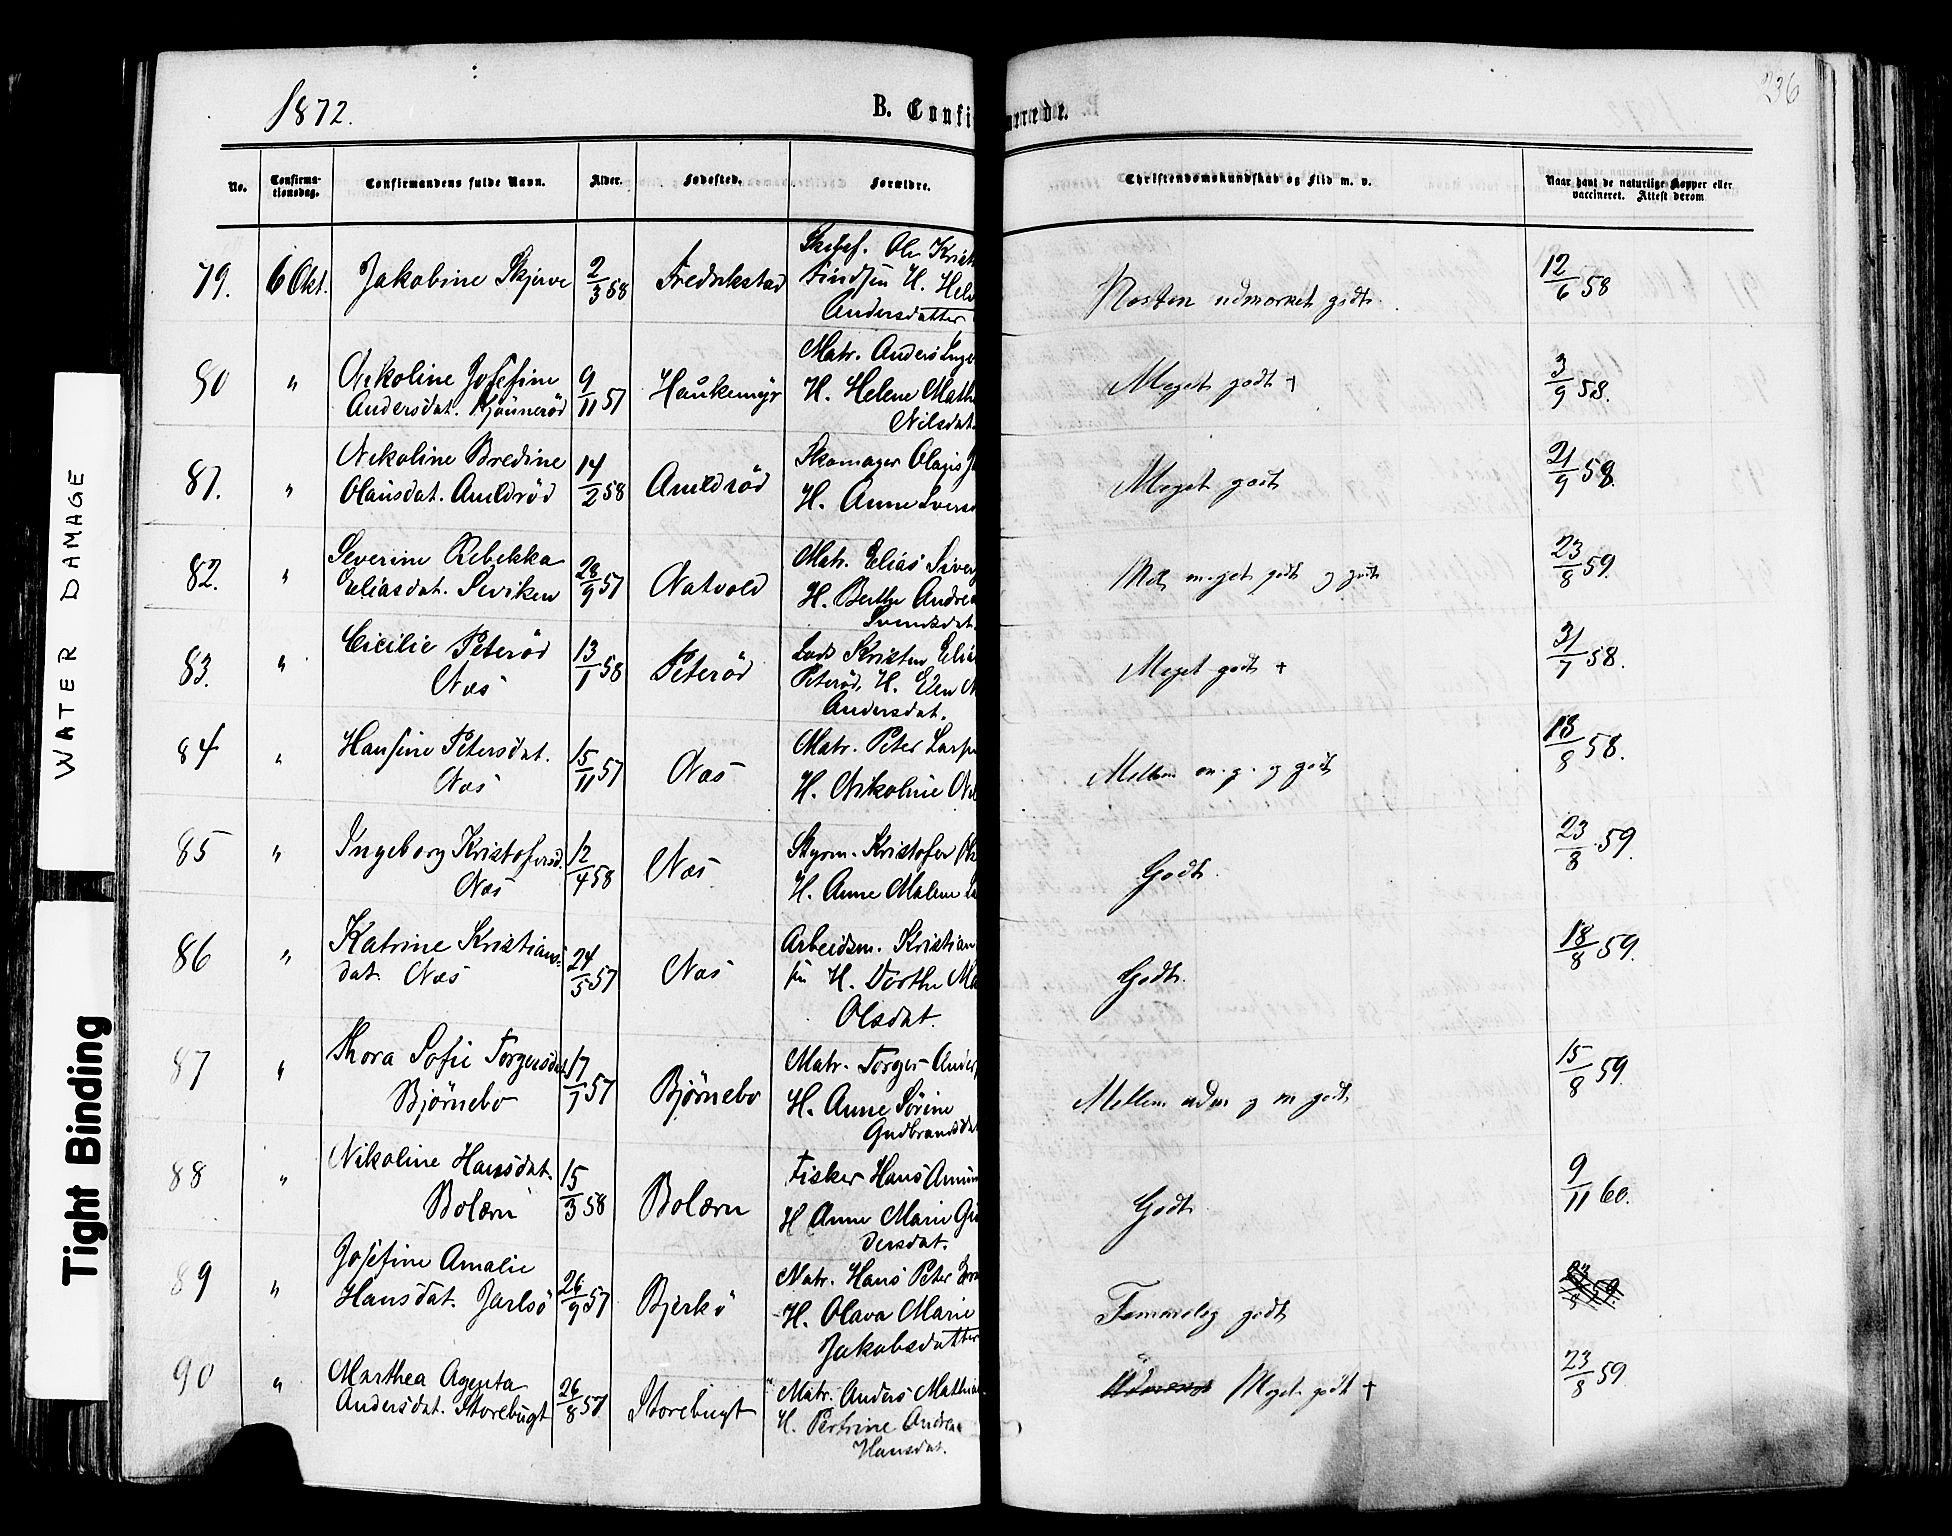 WATER DAMAGE
Tight Binding
1872.
B. Confi
rmerede.
236
No.
Confirma-
tionsdag.
Confirmandens fulde Navn.
Alder.
Fødested.
Forældre.
Christendomskundskab og Flid m. v.
Naar havt de naturlige Kopper eller
vaccineret. Attest derom
79. 6 Okt. Jakobine Skjerve 2/3 58 Fredrikstad
Ole Krist
H. Hel
Andersdatter
Næsten udmærket godt.
12/6 58
80 " Nikoline Josefine
Andersdat. 9/11 57 Haukemyr
Matr. Anders Inge
H. Helene Math
Nilsdat.
Meget godt +
3/9 58.
81. " Nikoline Bredine
Olausdat. Amldrød 14/2 58 Amldrød
Skomager
H. Anne Ivers
Meget godt
21/9 58.
82. " Severine Rebekka
Eliasdat. Seviken 28/9 57 Natvold
Matr. Elias Siver
H. Berthe Andrea
Svendsdat.
meget godt og godt
23/8 59.
83. " Cicilie Peterød
Næs 13/1 58 Peterød
Lods Kristen Elia
Peterød, H. Elen
Andersdat.
Meget godt +
31/7 58.
84 " Hansine Petersdat.
Næs 15/11 57 Næs
Matr. Peter Lars
H. Nikoline Nil
Mellem m. g. og godt
18/8 58.
85 " Ingeborg Kristofersd.
Næs 12/4 58 Næs
Styrm. Kristofer
H. Anne Malene
Godt.
23/8 59.
86 " Katrine Kristians-
dat. Næs 24/5 57 Næs
Arbeidsm. Kristian
sen H. Dorthe
Olsdat.
Godt.
18/8 59.
87 " Thora Sofie Torgersdat
Bjørnebo 17/7 57 Bjørnebo
Matr. Torger Anders
H. Anne Sørine
Gudbrandsdat
Mellem udm og m godt
15/8 59.
88 " Nikoline Hansdat.
Bolærn 15/3 58 Bolærn
Fisker Hans Amun
H Anne Marie
dersdat.
Godt.
9/11 60.
89 " Josefine Amalie
Hansdat. Jarlsø 26/9 57 Bjerkø
Matr. Hans Peter
H. Olava Marie
Jakobsdatter
Temmelig godt
90 " Marthea Agenta
Andersdat. Storebugt 26/8 57 Storebugt
Matr. Anders Mathia
H. Pertrine Andrea
Hansdat.
Meget godt +
23/8 59.